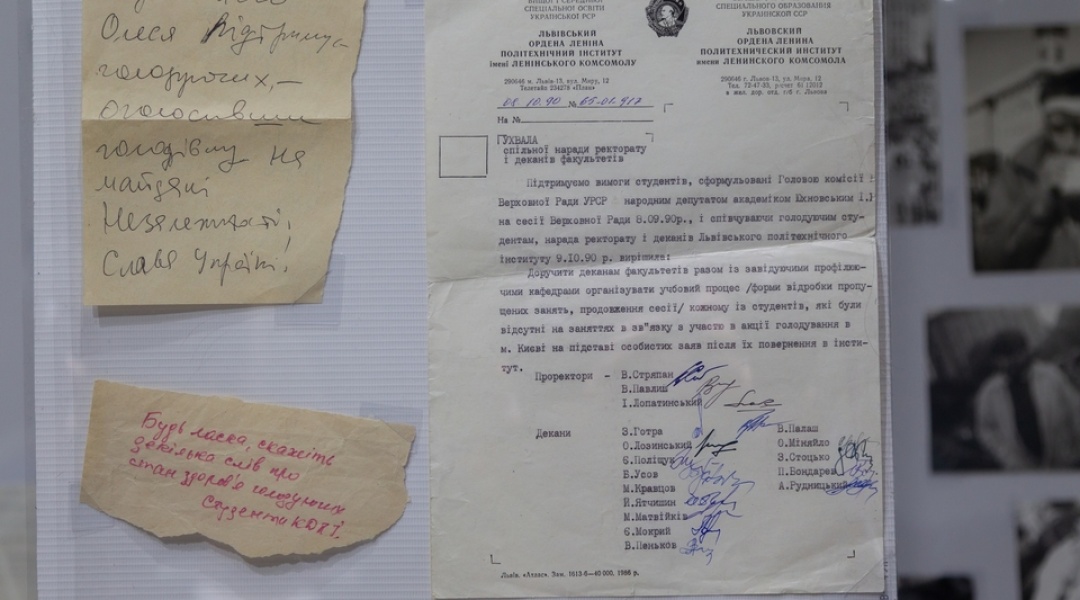 Олеся
голодуючих,—
оголосивши
голодівку на
майдані
Незалежності!
Слава Україні!
Будь ласка, скажіть
декілька слів про
стан здоров'я голодуючих
студенти
СПЕЦІАЛЬНОЇ ОСВІТИ
УКРАЇНСЬКОЇ РСР
ЛЬВІВСЬКИЙ
ОРДЕНА ЛЕНІНА
ПОЛІТЕХНІЧНИЙ ІНСТИТУТ
імені ЛЕНІНСЬКОГО КОМСОМОЛУ
290646 м. Львів-13, вул. Миру, 12
Телетайп 234278 «План»
СПЕЦИАЛЬНОГО ОБРАЗОВАНИЯ
УКРАИНСКОЙ ССР
ЛЬВОВСКИЙ
ОРДЕНА ЛЕНИНА
ПОЛИТЕХНИЧЕСКИЙ ИНСТИТУТ
имени ЛЕНИНСКОГО КОМСОМОЛА
290646 г. Львов-13, ул. Мира, 12
10.90 № 65-01-917
На №
УХВАЛА
спільної наради ректорату
і деканів факультетів
Підтримуємо вимоги студентів, сформульовані Головою комісії
Верховної Ради УРСР народним депутатом академіком Юхновським І.Р
на сесії Верховної Ради 8.09.90р., і співчуваючи голодуючим сту-
дентам, нарада ректорату і деканів Львівського політехнічного
інституту 9.10.90 р. вирішила:
Доручити деканам факультетів разом із завідуючими профілюю-
чими кафедрами організувати учбовий процес /форми відробки пропу-
щених занять, продовження сесії/ кожному із студентів, які були
відсутні на заняттях в зв"язку з участю в акції голодування в
м. Києві на підставі особистих заяв після їх повернення в інсти-
тут.
Проректори - В.Стряпан
В.Павлиш
І.Лопатинський
Декани З.Готра
О.Лозинський
Є.Поліщук
Б.Усов
М.Кравцов
Й.Ятчишин
М.Матвійків
Є.Мокрий
В.Пеньков
В.Палаш
О.Міняйло
З.Стоцько
П.Бондарев
А.Рудницький
Львів. «Атлас». Зам. 1613-6—40 000, 1986 р.